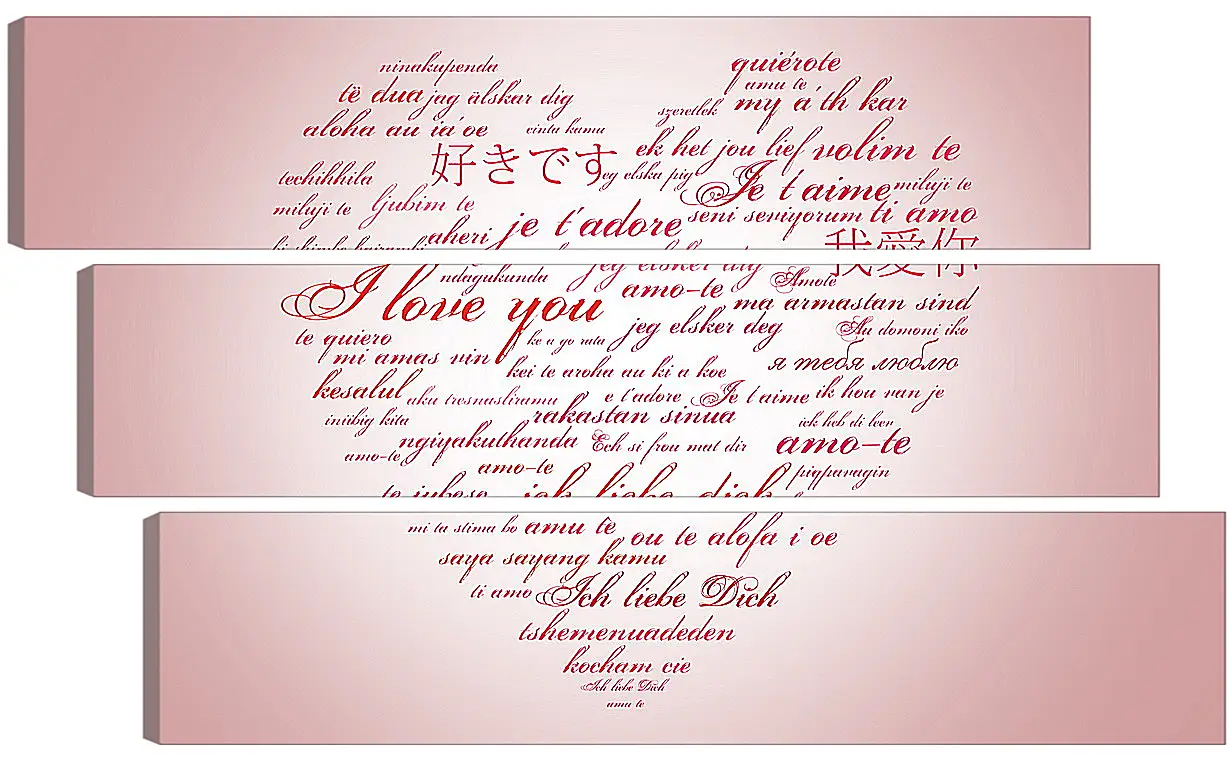 ninakupenda quiérote
amu te
të dua jag älskar dig szeretlek my a'th kar
aloha au ia'oe cinta kamu
ek het jou lief volim te
好きです
techihhila eg elska pig Je t'aime miluji te
miluji te ljubim te seni seviyorum ti amo
aheri je t'adore
我愛你
ndagukunda jeg elsker dig Amote
I love you amo-te ma armastan sind
te quiero ke a go rata jeg elsker deg Au domoni iko
mi amas vin kei te aroha au ki a koe я тебя люблю
kesalul aku tresnasliramu e t'adore Je t'aime ik hou van je
iniibig kita rakastan sinua ick heb di leev
ngiyakuthanda Ech si frou mat dir amo-te
amo-te amo-te pigparagin
te iubesc ich liebe dich
mi ta stima bo amu te ou te alofa i oe
saya sayang kamu
ti amo Ich liebe Dich
tshemenuadeden
kocham cie
Ich liebe Dich
amu te